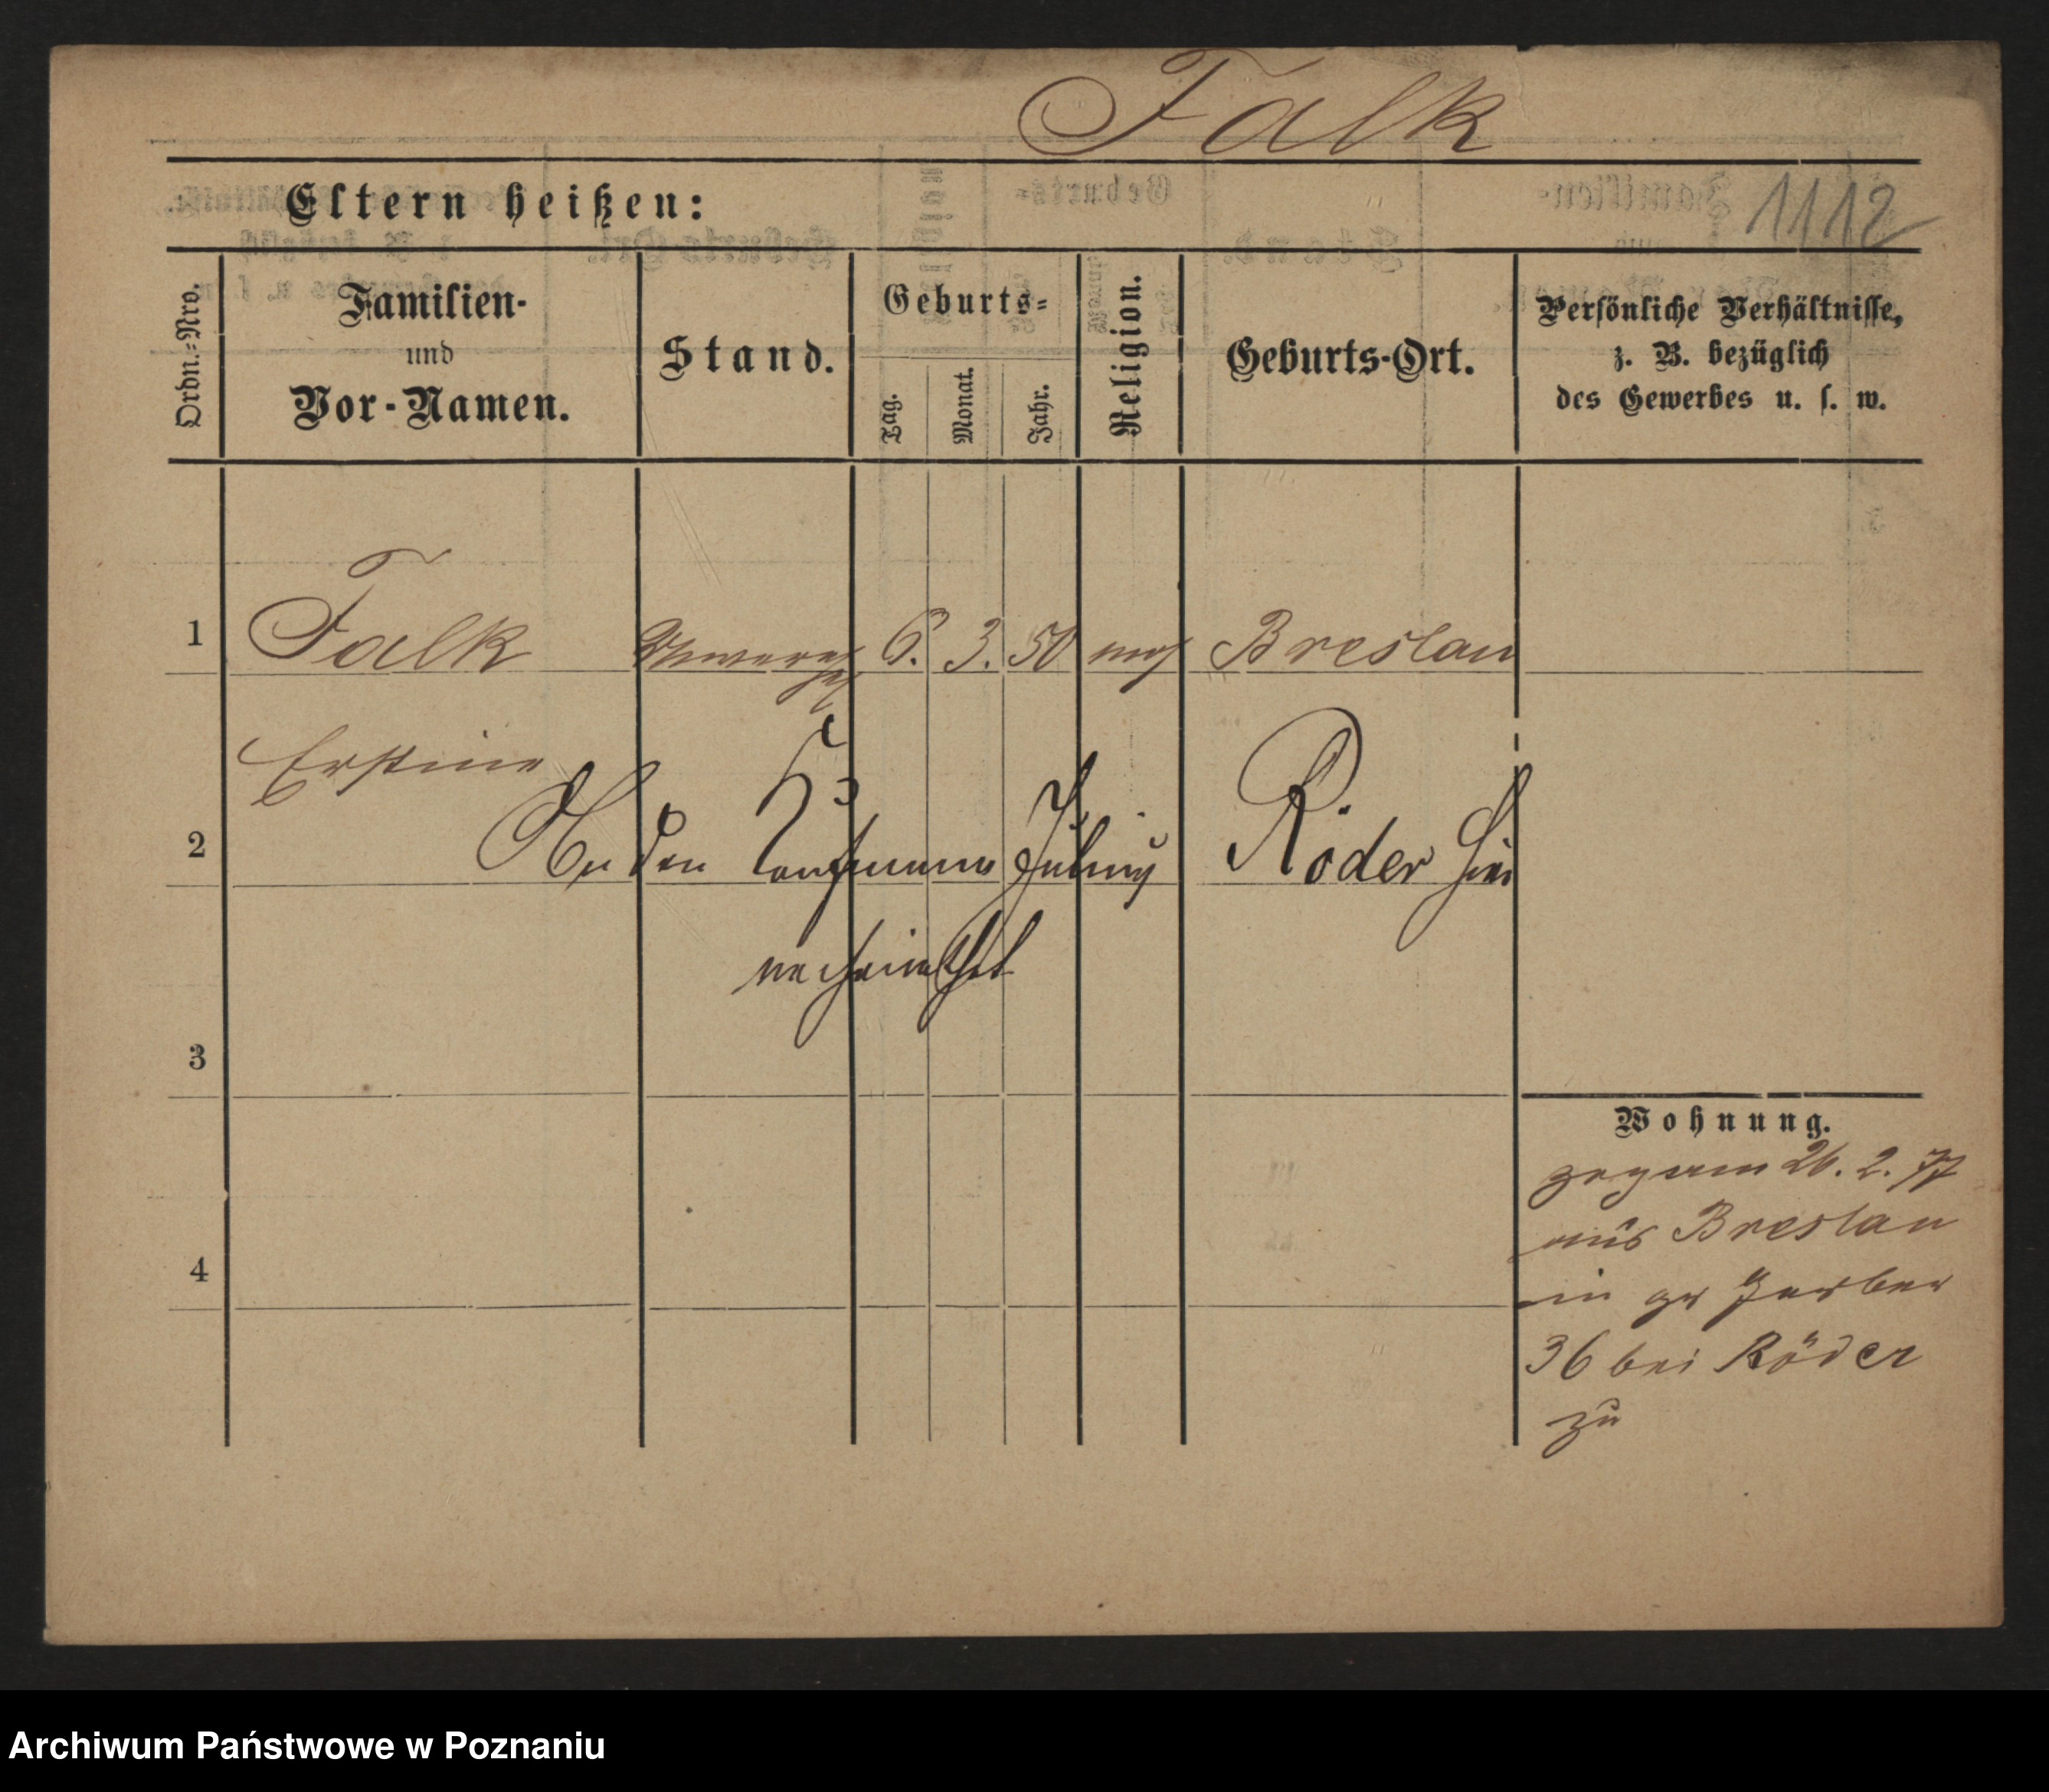 Falk
1112
Eltern heißen:
Ordn.-Nro.
Familien-
und
Vor-Namen.
Stand.
Geburts-
Tag.
Monat.
Jahr.
Religion.
Geburts-Ort.
Persönliche Verhältnisse,
z. B. bezüglich
des Gewerbes u. s. w.
1
Falk
6. 3. 50 mos Breslau
2
An den Kaufmann Julius Röder hier
verheirathet
3
4
Wohnung.
zog am 26. 2. 77
aus Breslau
in gr Gerber
36 bei Röder
zu
Archiwum Państwowe w Poznaniu